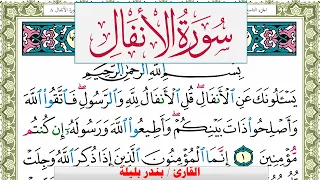 سُورَةُ الأَنْفَالِ
بِسْمِ اللَّهِ الرَّحْمَٰنِ الرَّحِيمِ
يَسْـَٔلُونَكَ عَنِ ٱلْأَنفَالِ ۖ قُلِ ٱلْأَنفَالُ لِلَّهِ وَٱلرَّسُولِ ۖ فَٱتَّقُوا۟ ٱللَّهَ
وَأَصْلِحُوا۟ ذَاتَ بَيْنِكُمْ ۖ وَأَطِيعُوا۟ ٱللَّهَ وَرَسُولَهُۥٓ إِن كُنتُم
مُّؤْمِنِينَ ١ إِنَّمَا ٱلْمُؤْمِنُونَ ٱلَّذِينَ إِذَا ذُكِرَ ٱللَّهُ وَجِلَتْ
القارئ / بندر بليلة